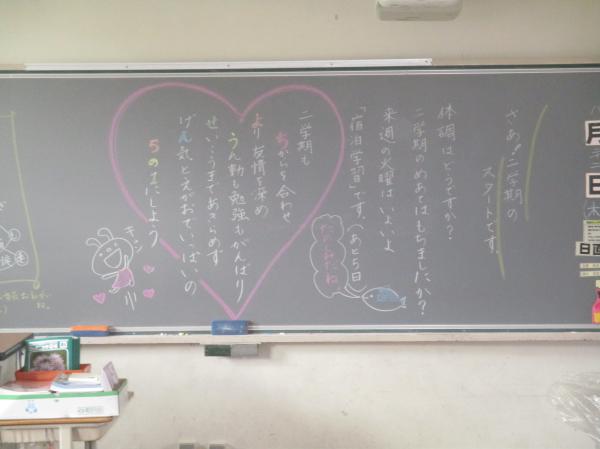 さあ!二学期の
スタートです。
体調はどうですか?
二学期のめあてはもちましたか?
来週の火曜はいよいよ
「宿泊学習」です。(あと5日)
たのしみだね
二学期も
ちからを合わせ
より友情を深め
うん動も勉強もがんばり
せいこうまであきらめず
げん気とえがおでいっぱいの
5の1にしよう
キュン
月
日
日直